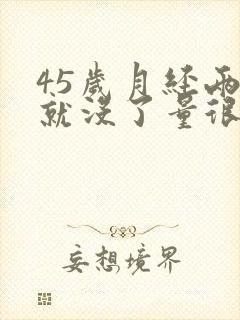 45歲月經兩
就沒了量很
妄想境界